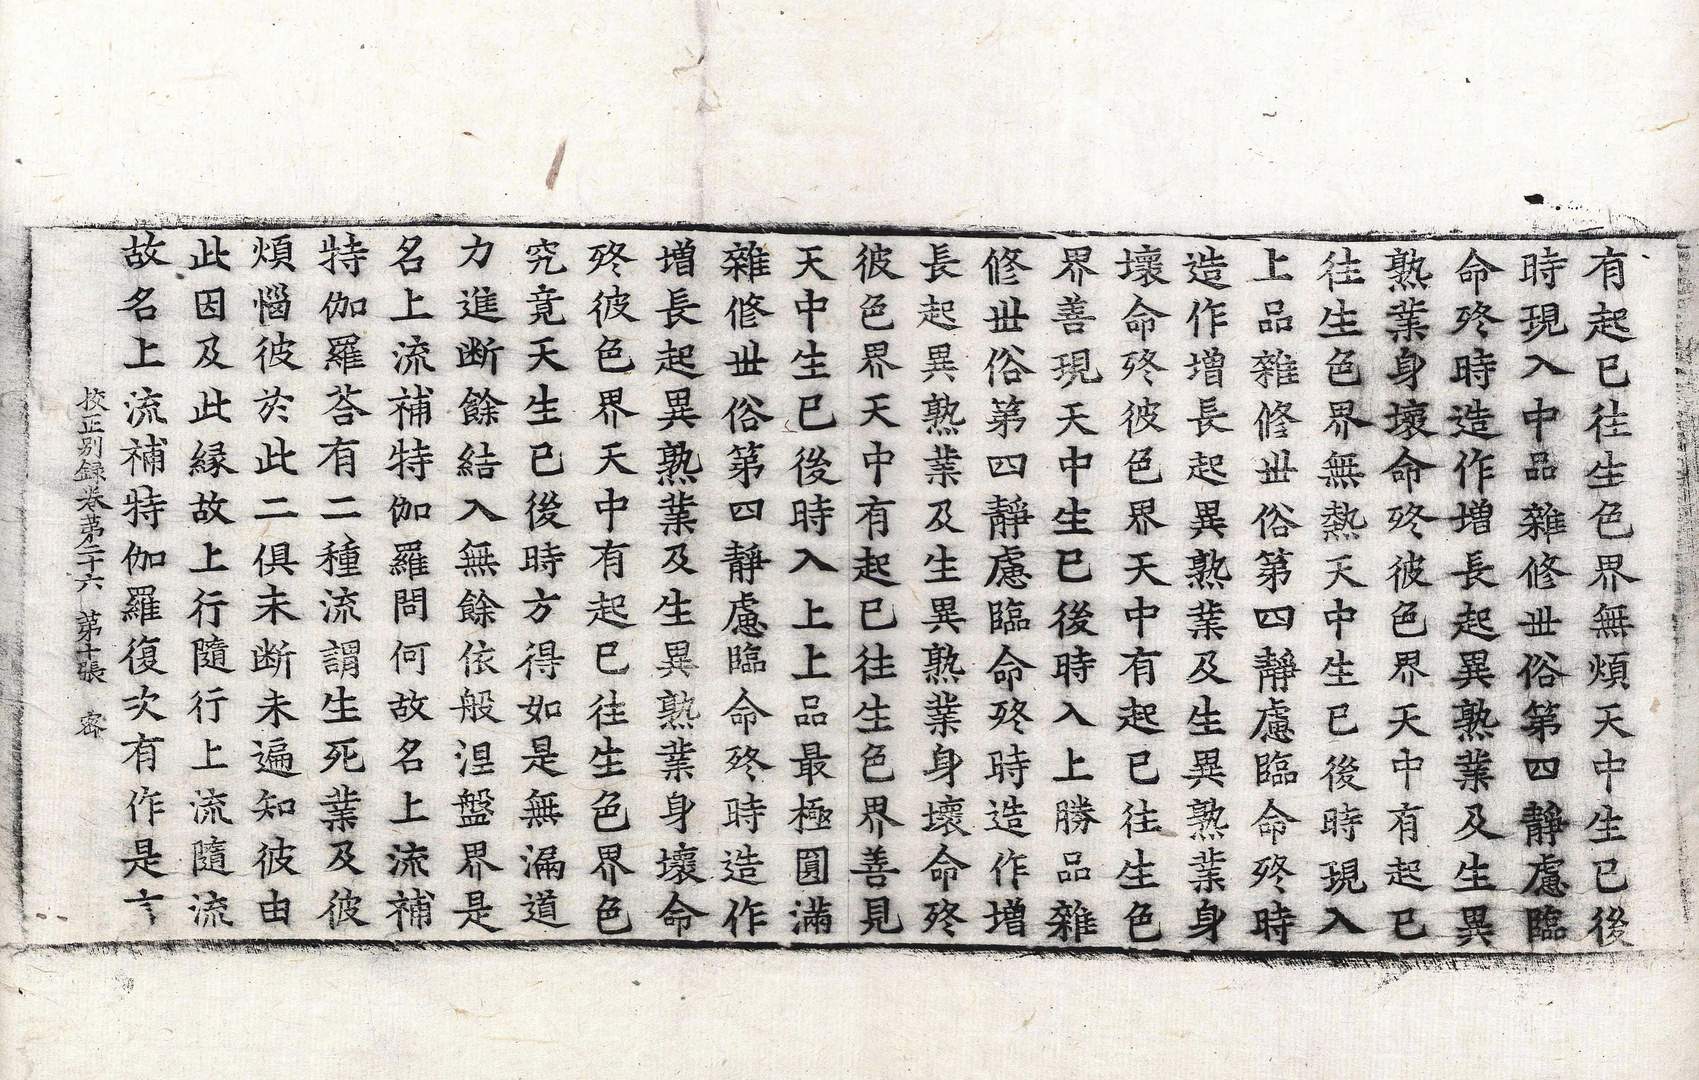 有起已往生色界無煩天中生已後
時現入中品雜修世俗第四靜慮臨
命終時造作增長起異熟業及生異
熟業身壞命終彼色界天中有起已
往生色界無熱天中生已後時現入
上品雜修世俗第四靜慮臨命終時
造作增長起異熟業及生異熟業身
壞命終彼色界天中有起已往生色
界善現天中生已後時入上勝品雜
修世俗第四靜慮臨命終時造作增
長起異熟業及生異熟業身壞命終
彼色界天中有起已往生色界善見
天中生已後時入上上品最極圓滿
雜修世俗第四靜慮臨命終時造作
增長起異熟業及生異熟業身壞命
終彼色界天中有起已往生色界色
究竟天生已後時方得如是無漏道
力進断餘結入無餘依般涅盤界是
名上流補特伽羅問何故名上流補
特伽羅荅有二種流謂生死業及彼
煩惱彼於此二俱未断未遍知彼由
此因及此緣故上行隨行上流隨流
故名上流補特伽羅復次有作是言
校正别録卷第二十六 第十張 密